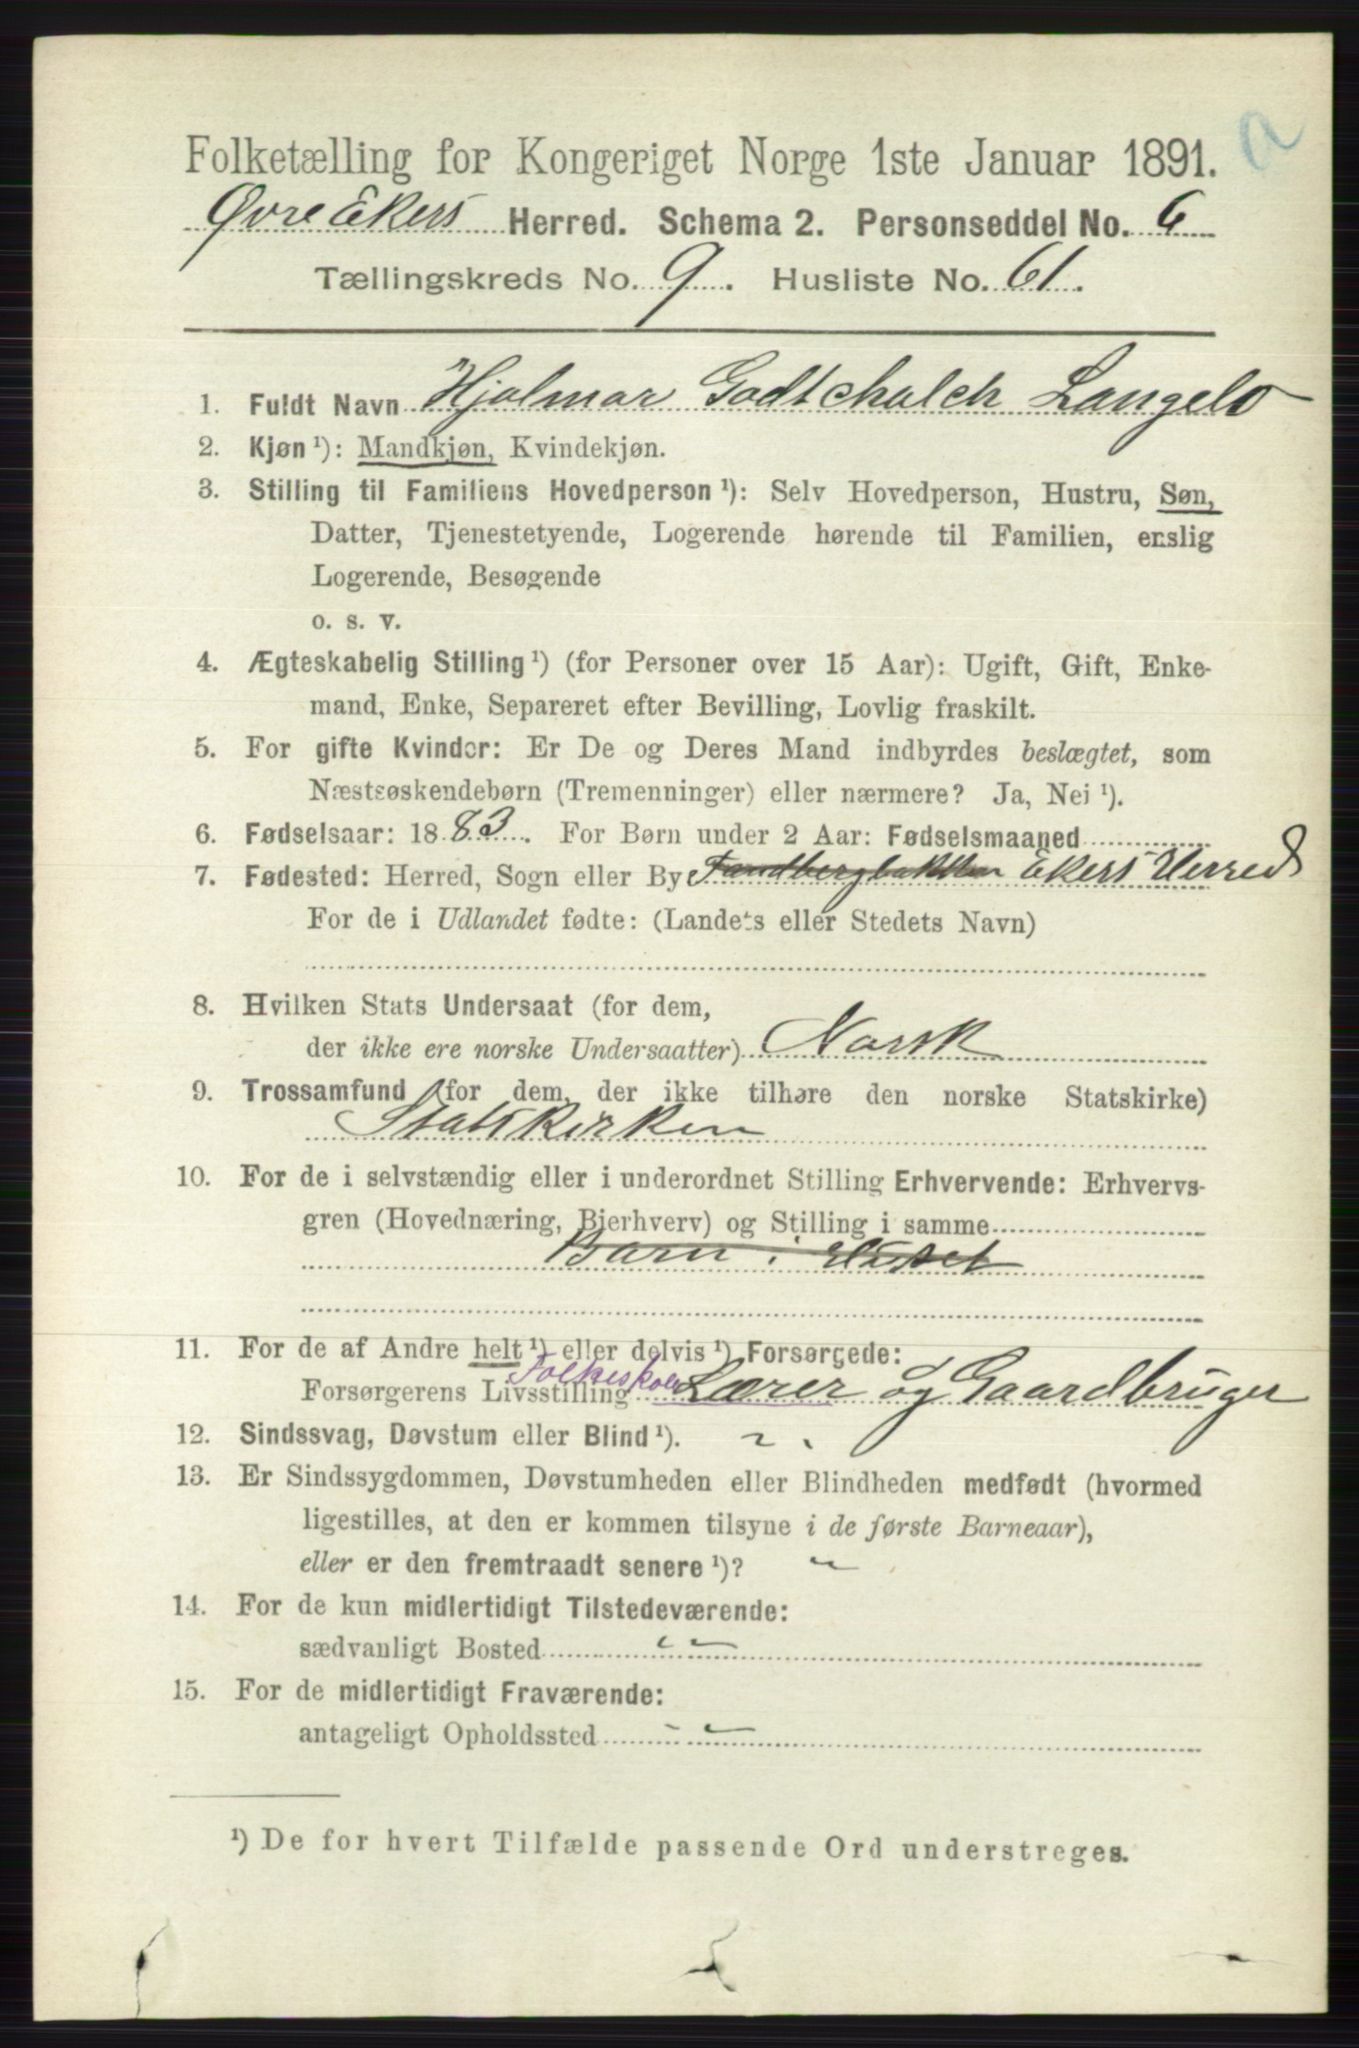 Folketælling for Kongeriget Norge 1ste Januar 1891.
Øvre Ekers Herred. Schema 2. Personseddel No. 6
Tællingskreds No. 9. Husliste No. 61.
1. Fuldt Navn Hjalmar Godtchalch Langelo
2. Kjøn ¹): Mandkjøn, Kvindekjøn.
3. Stilling til Familiens Hovedperson ¹): Selv Hovedperson, Hustru, Søn,
Datter, Tjenestetyende, Logerende hørende til Familien, enslig
Logerende, Besøgende
o. s. v.
4. Ægteskabelig Stilling ¹) (for Personer over 15 Aar): Ugift, Gift, Enke-
mand, Enke, Separeret efter Bevilling, Lovlig fraskilt.
5. For gifte Kvinder: Er De og Deres Mand indbyrdes beslægtet, som
Næstsøskendebørn (Tremenninger) eller nærmere? Ja, Nei ¹).
6. Fødselsaar: 1883. For Børn under 2 Aar: Fødselsmaaned
7. Fødested: Herred, Sogn eller By Ekers Herred
For de i Udlandet fødte: (Landets eller Stedets Navn)
8. Hvilken Stats Undersaat (for dem,
der ikke ere norske Undersaatter) Norsk
9. Trossamfund (for dem, der ikke tilhøre den norske Statskirke)
Statskirken
10. For de i selvstændig eller i underordnet Stilling Erhvervende: Erhvervs-
gren (Hovednæring, Bierhverv) og Stilling i samme
Barn i Huset
11. For de af Andre helt ¹) eller delvis ¹) Forsørgede:
Forsørgerens Livsstilling Folkeskole Lærer og Gaardbruger
12. Sindssvag, Døvstum eller Blind ¹).
13. Er Sindssygdommen, Døvstumheden eller Blindheden medfødt (hvormed
ligestilles, at den er kommen tilsyne i de første Barneaar),
eller er den fremtraadt senere ¹)?
14. For de kun midlertidigt Tilstedeværende:
sædvanligt Bosted
15. For de midlertidigt Fraværende:
antageligt Opholdssted
¹) De for hvert Tilfælde passende Ord understreges.